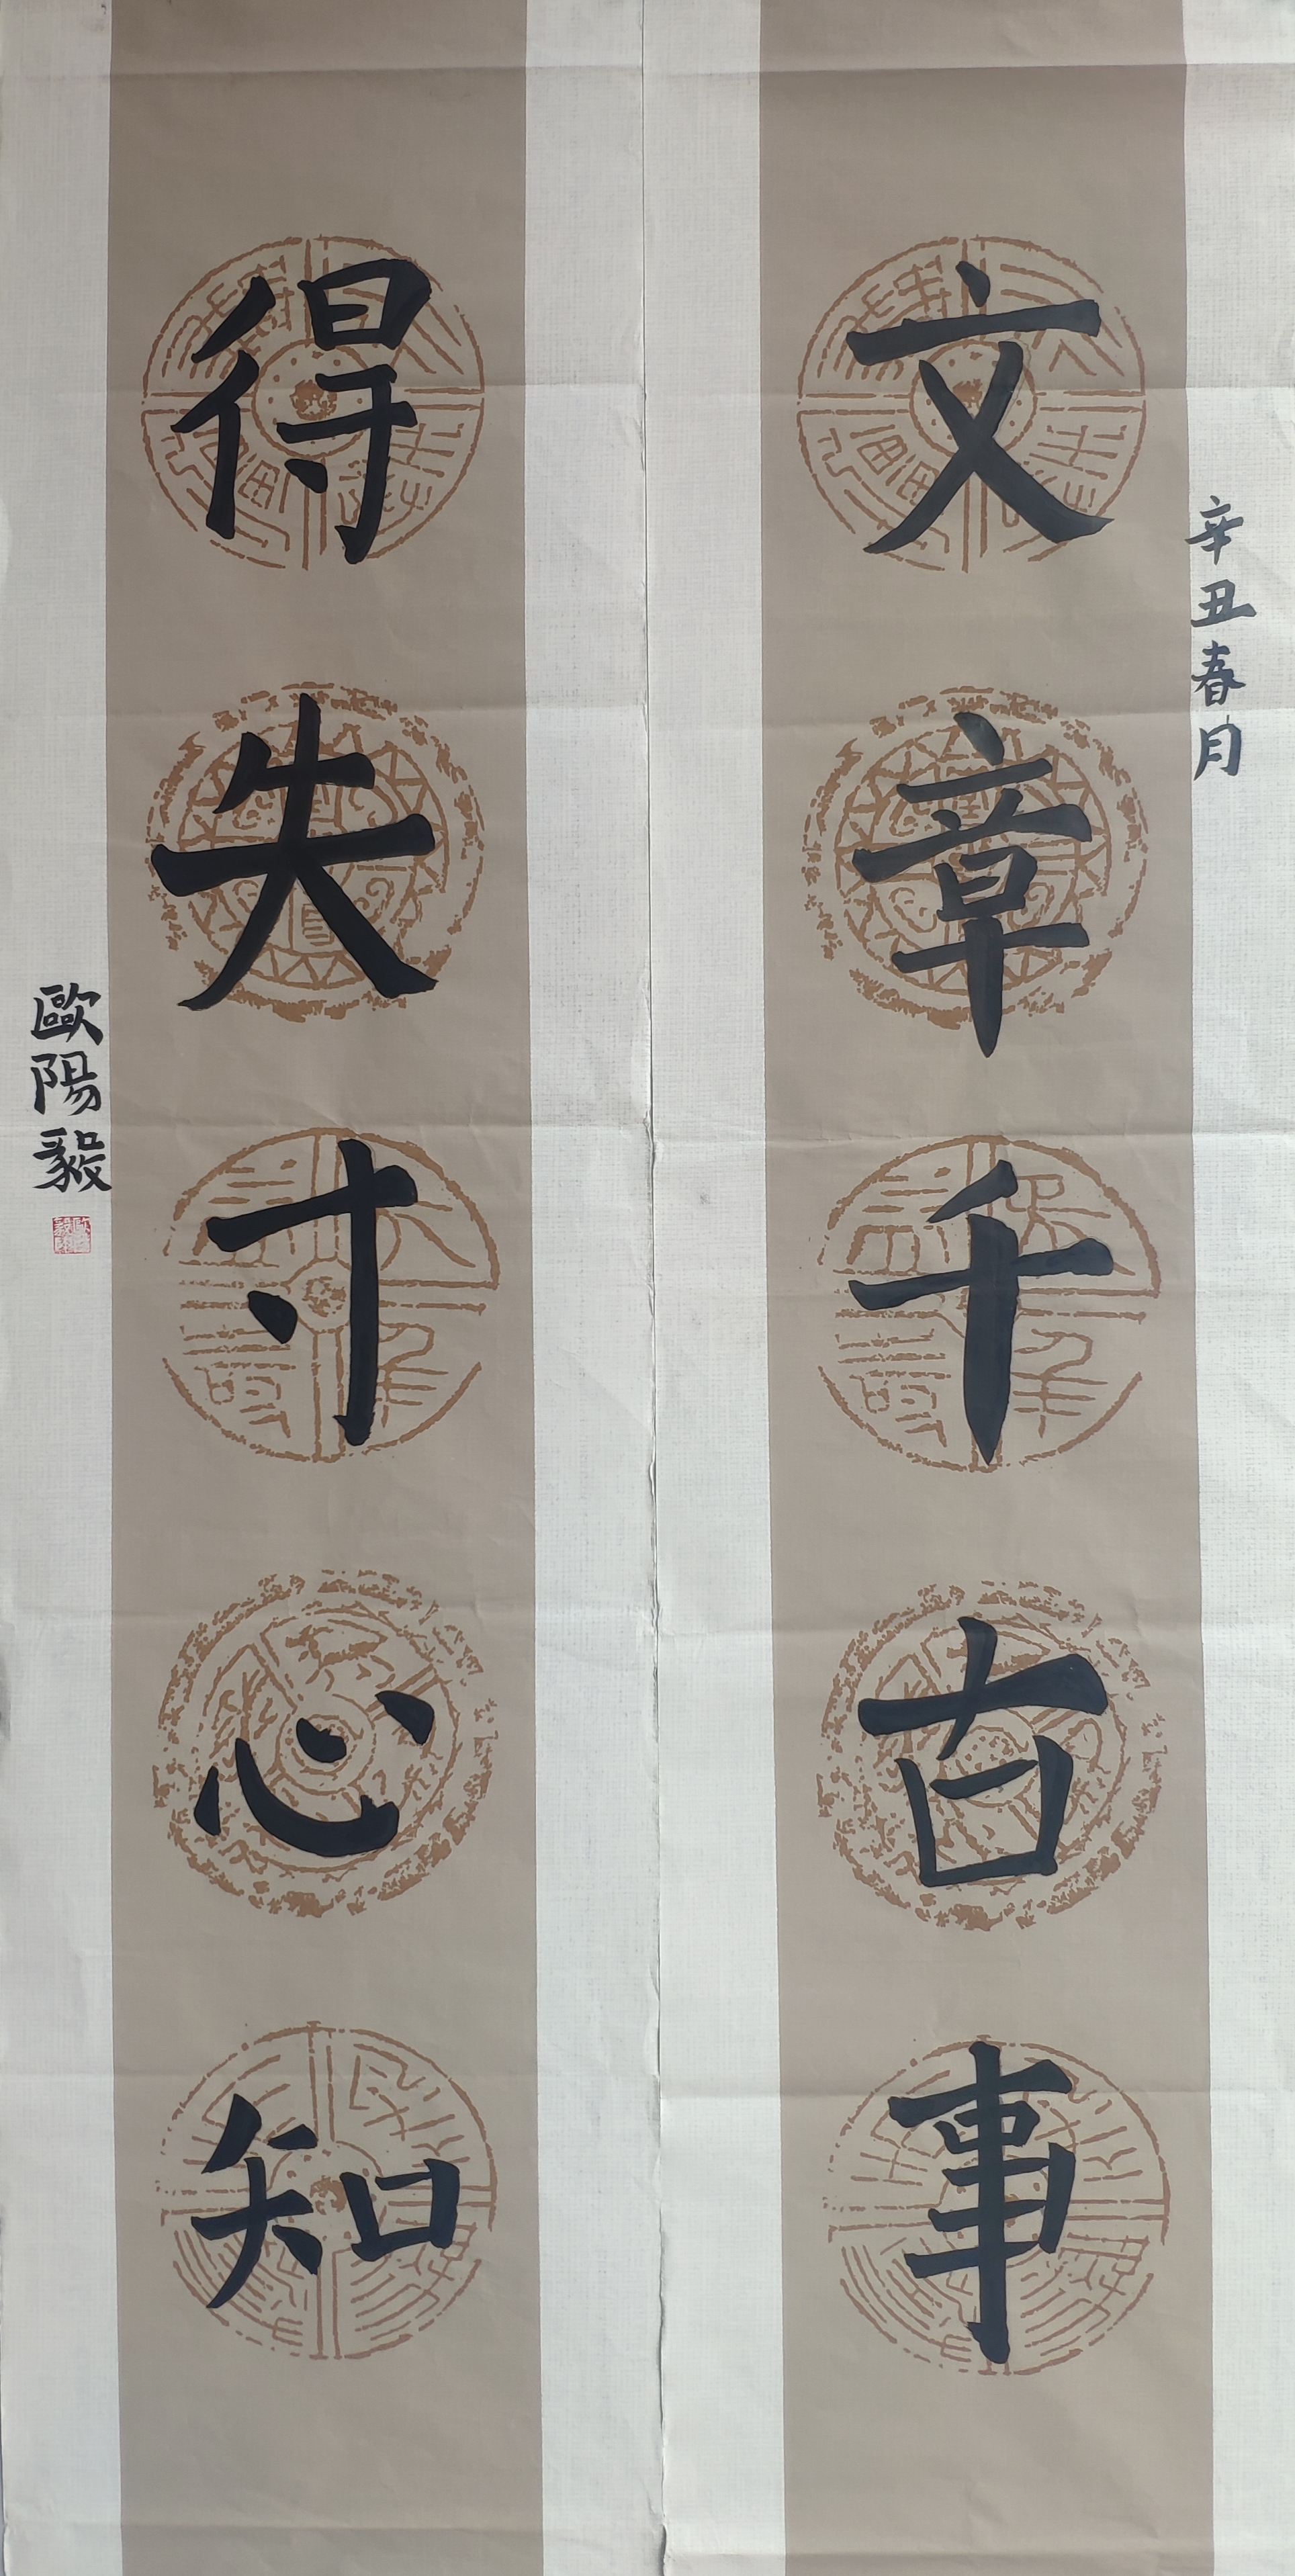 辛丑春月
文章千古事
得失寸心知
歐陽毅